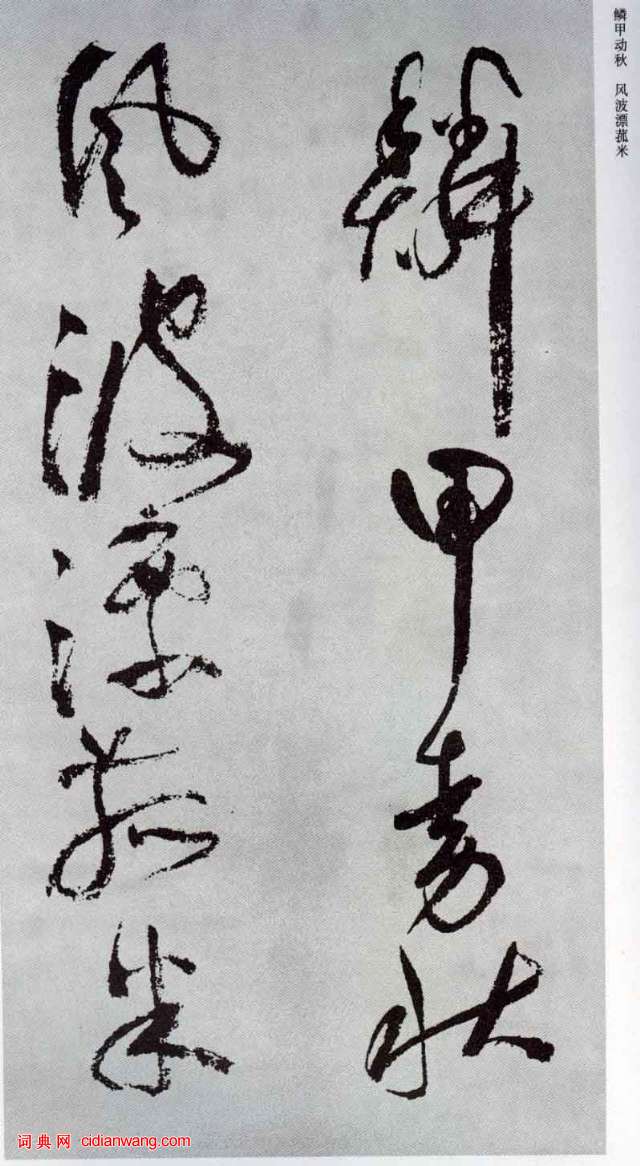 鳞甲动秋 风波漂菰米
鱗甲動秋
風波漂菰米
词典网 cidianwang.com